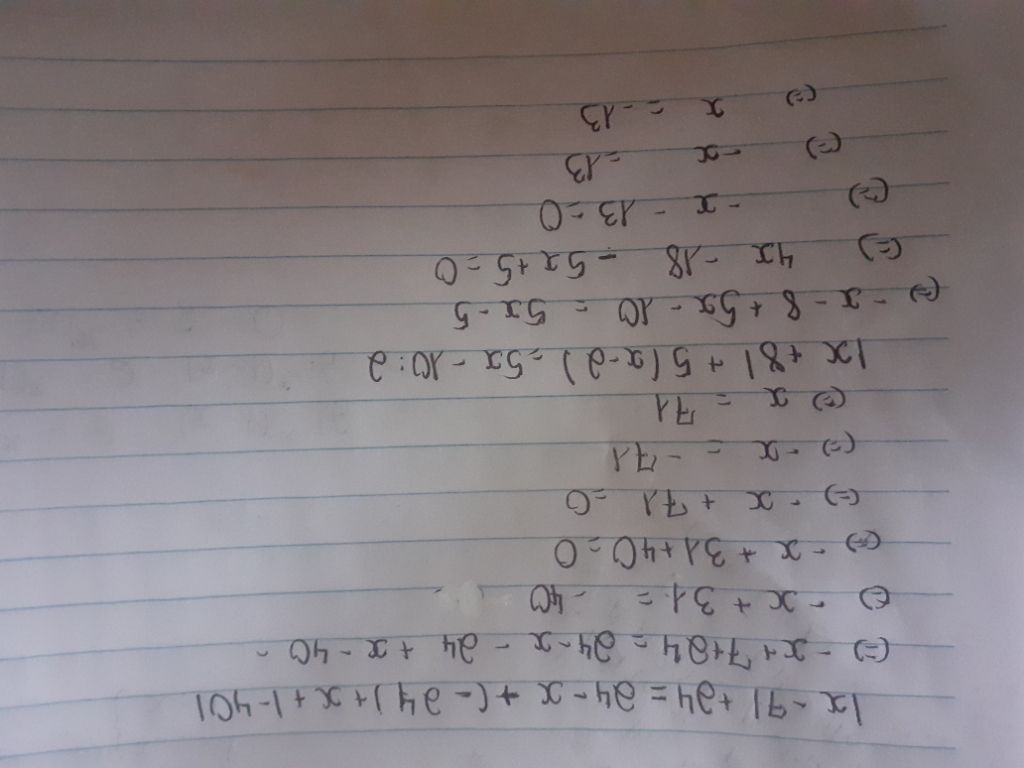 |x - 7| + 24 = 24 - x + (-24) + x + |-40|
(=) - x + 7 + 24 = 24 - x - 24 + x - 40
(=) - x + 31 = - 40
(=) - x + 31 + 40 = 0
(=) - x + 71 = 0
(=) - x = - 71
(=) x = 71
|x + 8| + 5(x-2) = 5x - 10:2
(=) - x - 8 + 5x - 10 = 5x - 5
(=) 4x - 18 - 5x + 5 = 0
(=) - x - 13 = 0
(=) - x = 13
(=) x = -13